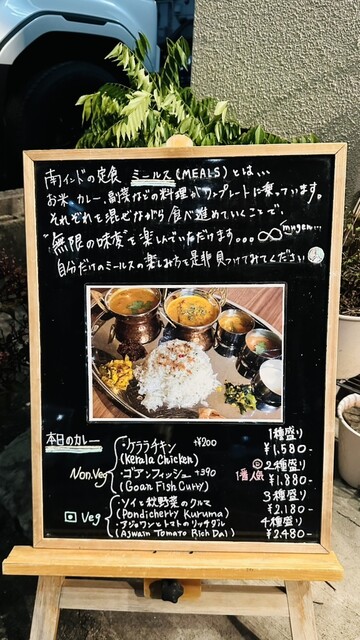 南インドの定食 ミールス(MEALS)とは、、、
お米、カレー、副菜などの料理がワンプレートに乗っています。
それぞれを混ぜながら食べ進めていくことで、
"無限の味変"を楽しんでいただけます。。。∞ mugen...
自分だけのミールスの楽しみ方を是非見つけてみてください
本日のカレー
Non.Veg
・ケララチキン +¥200
(Kerala Chicken)
・ゴアンフィッシュ +390
(Goan Fish Curry)
Veg
・ソイと秋野菜のクルマ
(Pondicherry Kuruma)
・アジョワンとトマトのリッチダル
(Ajwain Tomato Rich Dal)
1種盛り
¥1,580-
1番人気 2種盛り
¥1,880-
3種盛り
¥2,180-
4種盛り
¥2,480-